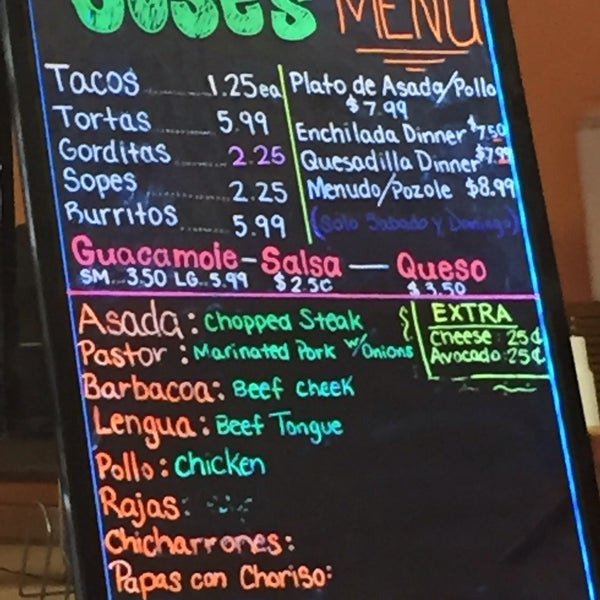 Joses MENU
Tacos 1.25ea
Tortas 5.99
Gorditas 2.25
Sopes 2.25
Burritos 5.99
Plato de Asada/Pollo
$7.99
Enchilada Dinner $7.50
Quesadilla Dinner $7.99
Menudo/Pozole $8.99
(Solo Sabado y Domingo)
Guacamole - Salsa — Queso
SM. 3.50 LG. 5.99 $2.50 $3.50
Asada: Chopped Steak
Pastor: Marinated Pork w/Onions
Barbacoa: Beef Cheek
Lengua: Beef Tongue
Pollo: Chicken
Rajas:
Chicharrones:
Papas con Choriso:
EXTRA
Cheese: 25¢
Avocado: 25¢